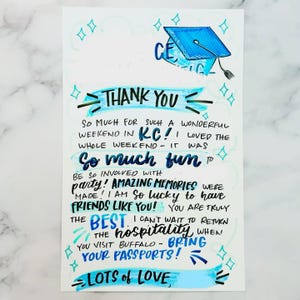 CE
THANK YOU
SO MUCH FOR SUCH A WONDERFUL
WEEKEND IN K.C.! I LOVED THE
WHOLE WEEKEND - IT WAS
So much fun TO
BE SO INVOLVED WITH
party! AMAZING MEMORIES WERE
MADE! I AM SO lucky TO HAVE
FRIENDS LIKE YOU! YOU ARE TRULY
THE BEST I CAN'T WAIT TO RETURN
THE hospitality WHEN
YOU VISIT BUFFALO - BRING
YOUR PASSPORTS!
LOTS OF LOVE,